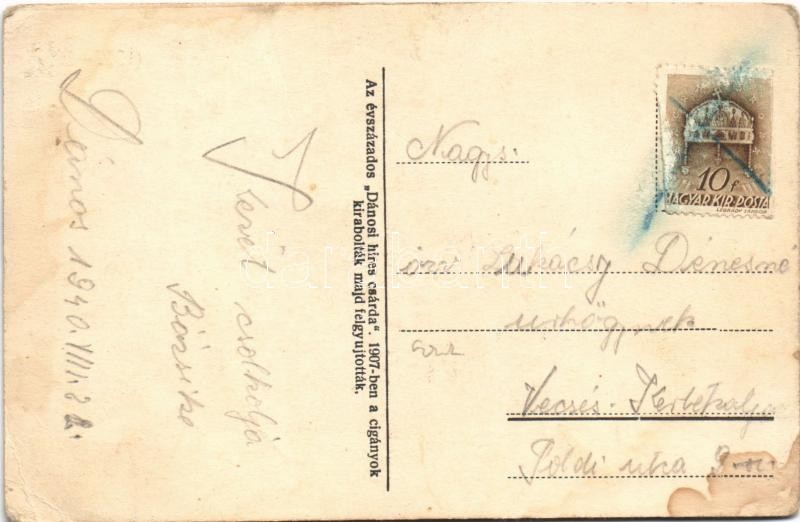 Dános 1940 VIII. 22.
Szeret csolkolja
Bözsike
Az évszázados „Dánosi híres csárda". 1907-ben a cigányok
kirabolták majd felgyujtották.
10 f
MAGYAR KIR. POSTA
LÉGRÁDY SÁNDOR
Nagys:
özv Lukácsy Dénesné
urhőgynek
Vecsés-
Poldi utca 9
darabanth